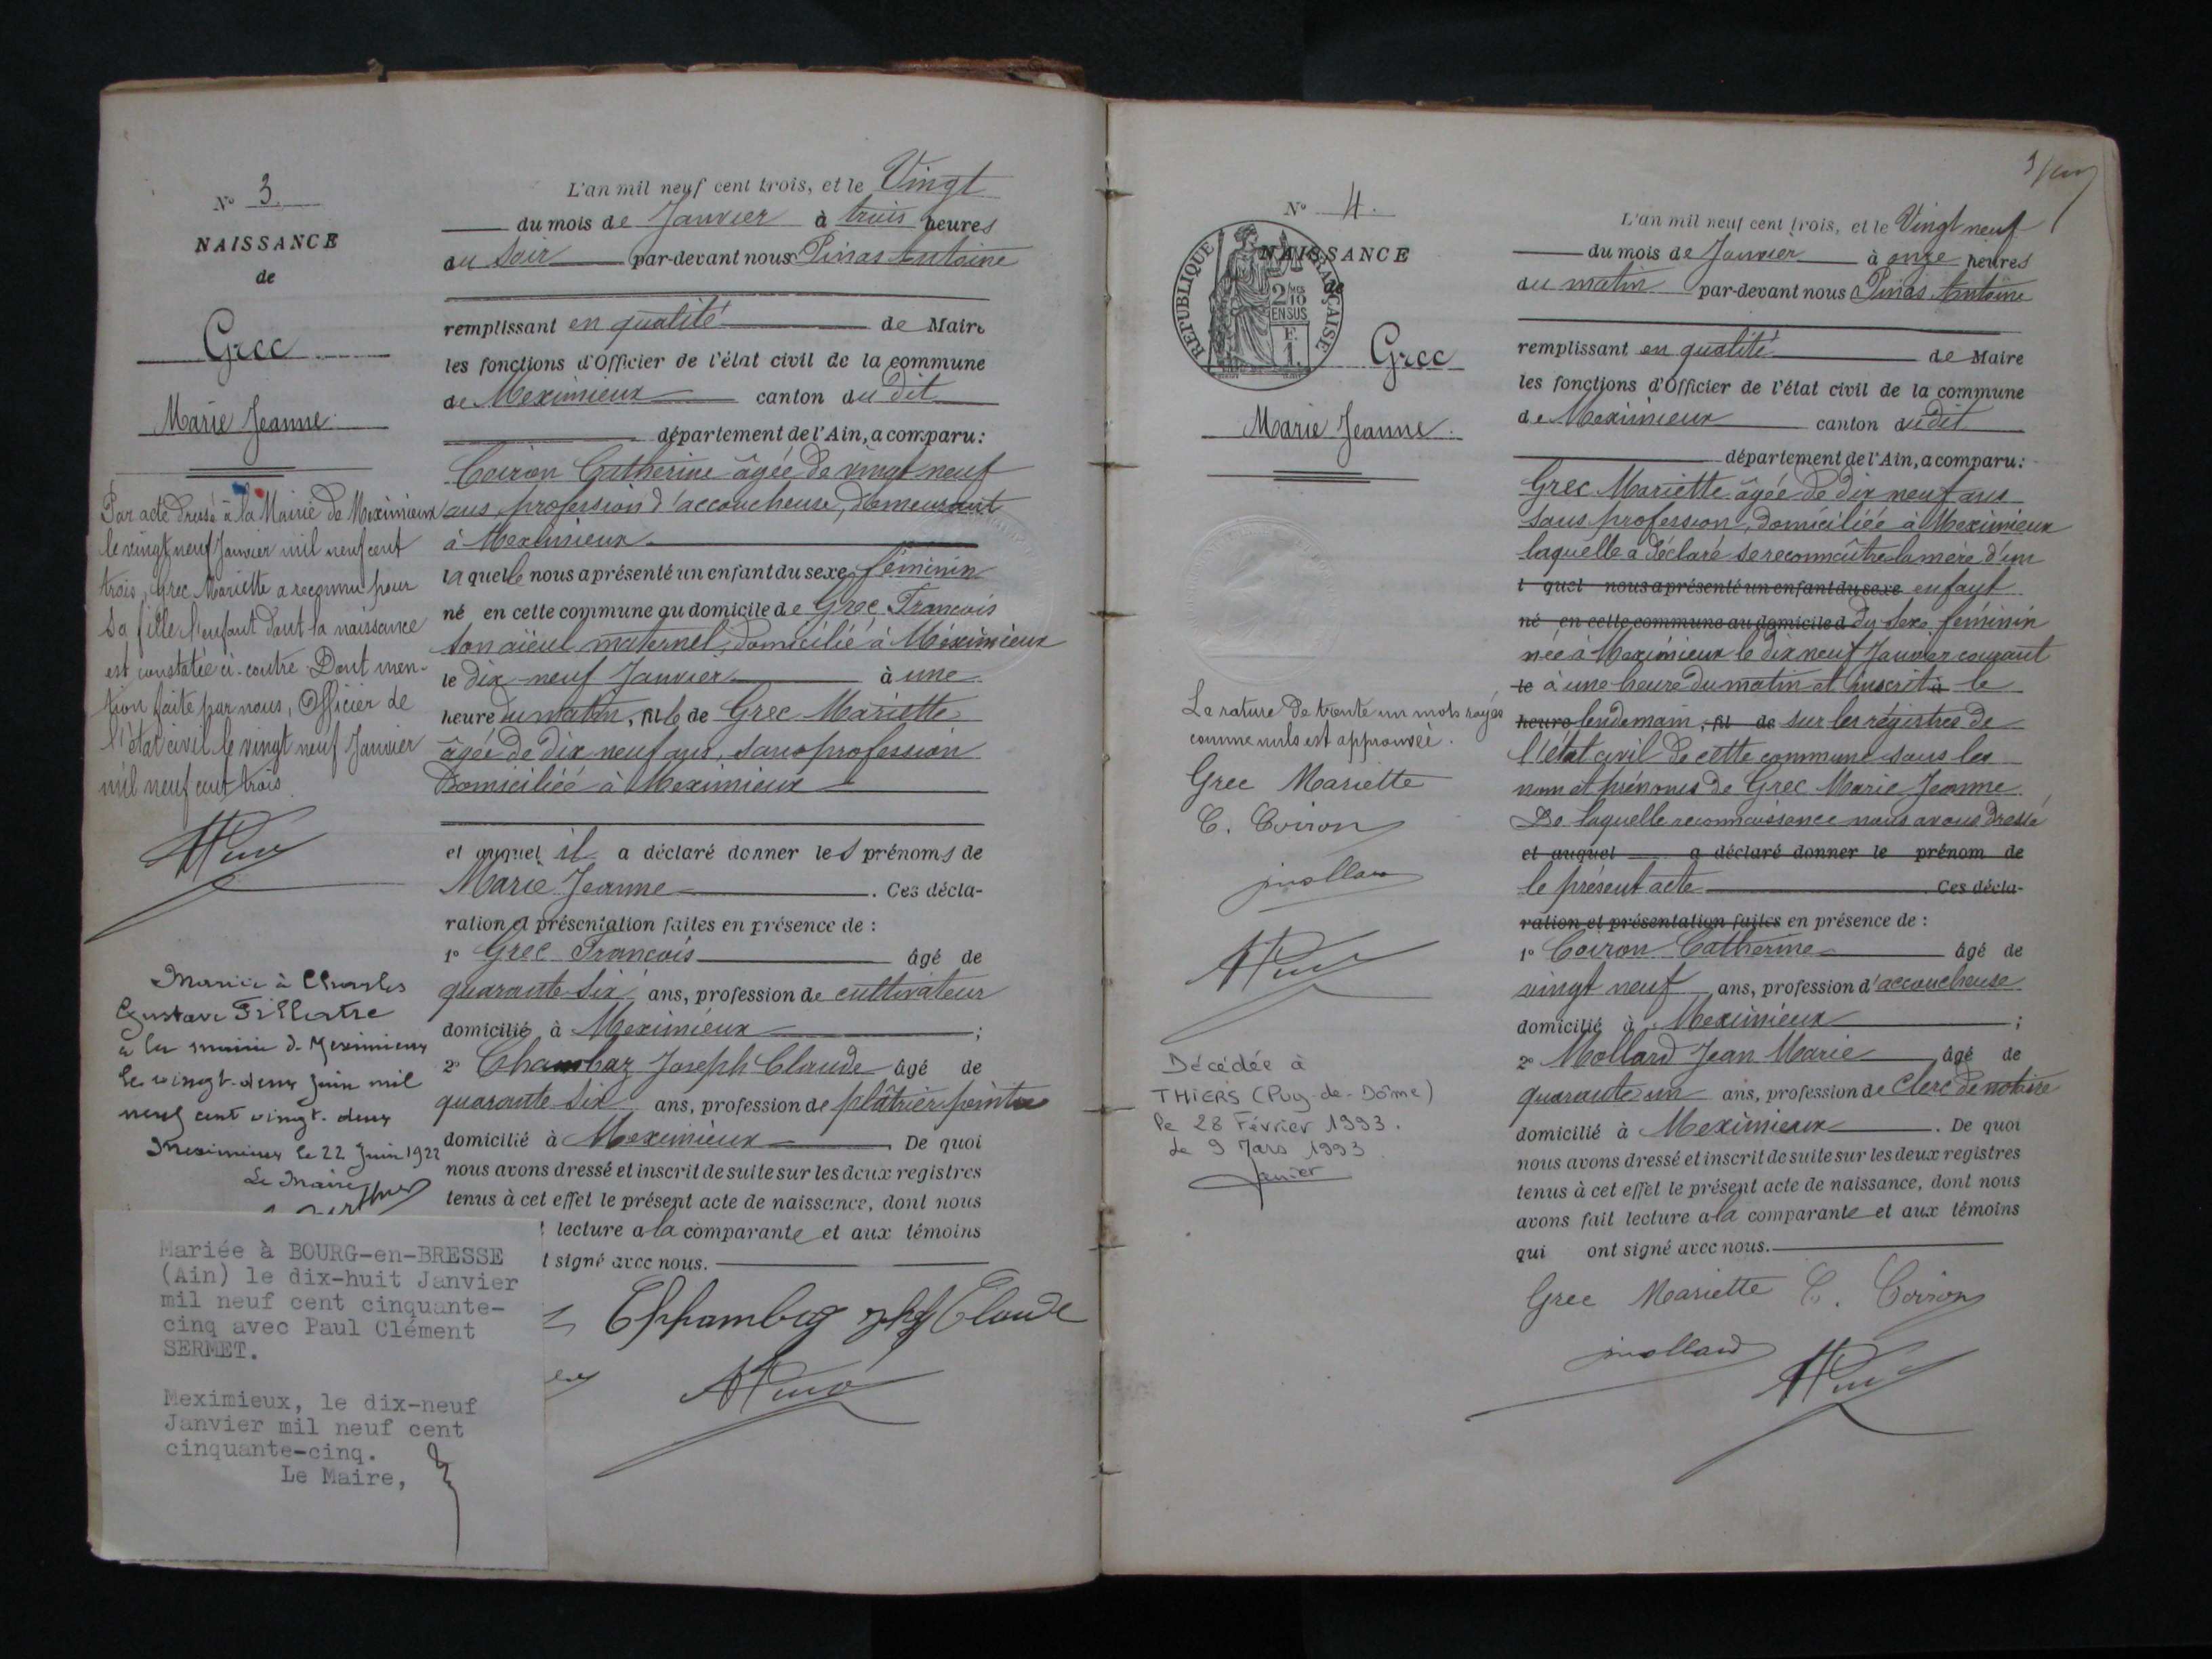 N° 3.
NAISSANCE
de
Grec
Marie Jeanne
Par acte dressé à la Mairie de Meximieux
le vingt neuf Janvier mil neuf cent
trois, Grec Mariette a reconnu pour
sa fille l'enfant dont la naissance
est constatée ci-contre. Dont men-
tion faite par nous, Officier de
l'état civil le vingt neuf Janvier
mil neuf cent trois.
Mariée à Charles
Gustave Fillestre
à la mairie de Meximieux
le vingt-deux juin mil
neuf cent vingt-deux
Meximieux le 22 Juin 1922
Le Maire
Mariée à BOURG-en-BRESSE
(Ain) le dix-huit Janvier
mil neuf cent cinquante-
cinq avec Paul Clément
SERMET.
Meximieux, le dix-neuf
Janvier mil neuf cent
cinquante-cinq.
Le Maire,
L'an mil neuf cent trois, et le Vingt
du mois de Janvier à trois heures
du Soir par-devant nous Pinas Antoine
remplissant en qualité de Maire
les fonctions d'Officier de l'état civil de la commune
de Meximieux canton du dit
département de l'Ain, a comparu:
Coiron Catherine âgée de vingt neuf
ans, profession d'accoucheuse, demeurant
à Meximieux
laquelle nous a présenté un enfant du sexe féminin
né en cette commune au domicile de Grec François
son aïeul maternel, domicilié à Meximieux
le dix-neuf Janvier à une
heure du matin, fille de Grec Mariette
âgée de dix neuf ans, sans profession
Domiciliée à Meximieux
et auquel il a déclaré donner les prénoms de
Marie Jeanne . Ces décla-
ration et présentation faites en présence de :
1° Grec François âgé de
quarante-six ans, profession de cultivateur
domicilié à Meximieux ;
2° Chambaz Joseph Claude âgé de
quarante six ans, profession de plâtrier-peintre
domicilié à Meximieux De quoi
nous avons dressé et inscrit de suite sur les deux registres
tenus à cet effet le présent acte de naissance, dont nous
lecture a la comparante et aux témoins
t signé avec nous.
Claude
N° 4.
REPUBLIQUE FRANÇAISE
2/10
EN SUS
F.
1.
NAISSANCE
de
Grec
Marie Jeanne.
La rature de trente un mots rayés
comme nuls est approuvée.
Grec Mariette
C. Coiron
Mollard
Décédée à
THIERS (Puy-de-Dôme)
le 28 Février 1993.
Le 9 Mars 1993
L'an mil neuf cent trois, et le Vingt neuf
du mois de Janvier à onze heures
du matin par-devant nous Pinas Antoine
remplissant en qualité de Maire
les fonctions d'Officier de l'état civil de la commune
de Meximieux canton du dit
département de l'Ain, a comparu:
Grec Mariette âgée de dix neuf ans
sans profession, domiciliée à Meximieux
laquelle a déclaré se reconnaître la mère d'un
l quel nous a présenté un enfant du sexe enfant
né en cette commune au domicile d du sexe féminin
née à Meximieux le dix neuf Janvier courant
le à une heure du matin et inscrit à le
heure lendemain , fil de sur les régistres de
l'état civil de cette commune sous les
nom et prénoms de Grec Marie Jeanne.
De laquelle reconnaissance nous avons dressé
et auquel a déclaré donner le prénom de
le présent acte . Ces décla-
ration et présentation faites en présence de :
1° Coiron Catherine âgé de
vingt neuf ans, profession d'accoucheuse
domicilié à Meximieux ;
2° Mollard Jean Marie âgé de
quarante un ans, profession de Clerc de notaire
domicilié à Meximieux . De quoi
nous avons dressé et inscrit de suite sur les deux registres
tenus à cet effet le présent acte de naissance, dont nous
avons fait lecture a la comparante et aux témoins
qui ont signé avec nous.
Grec Mariette C. Coiron
Mollard